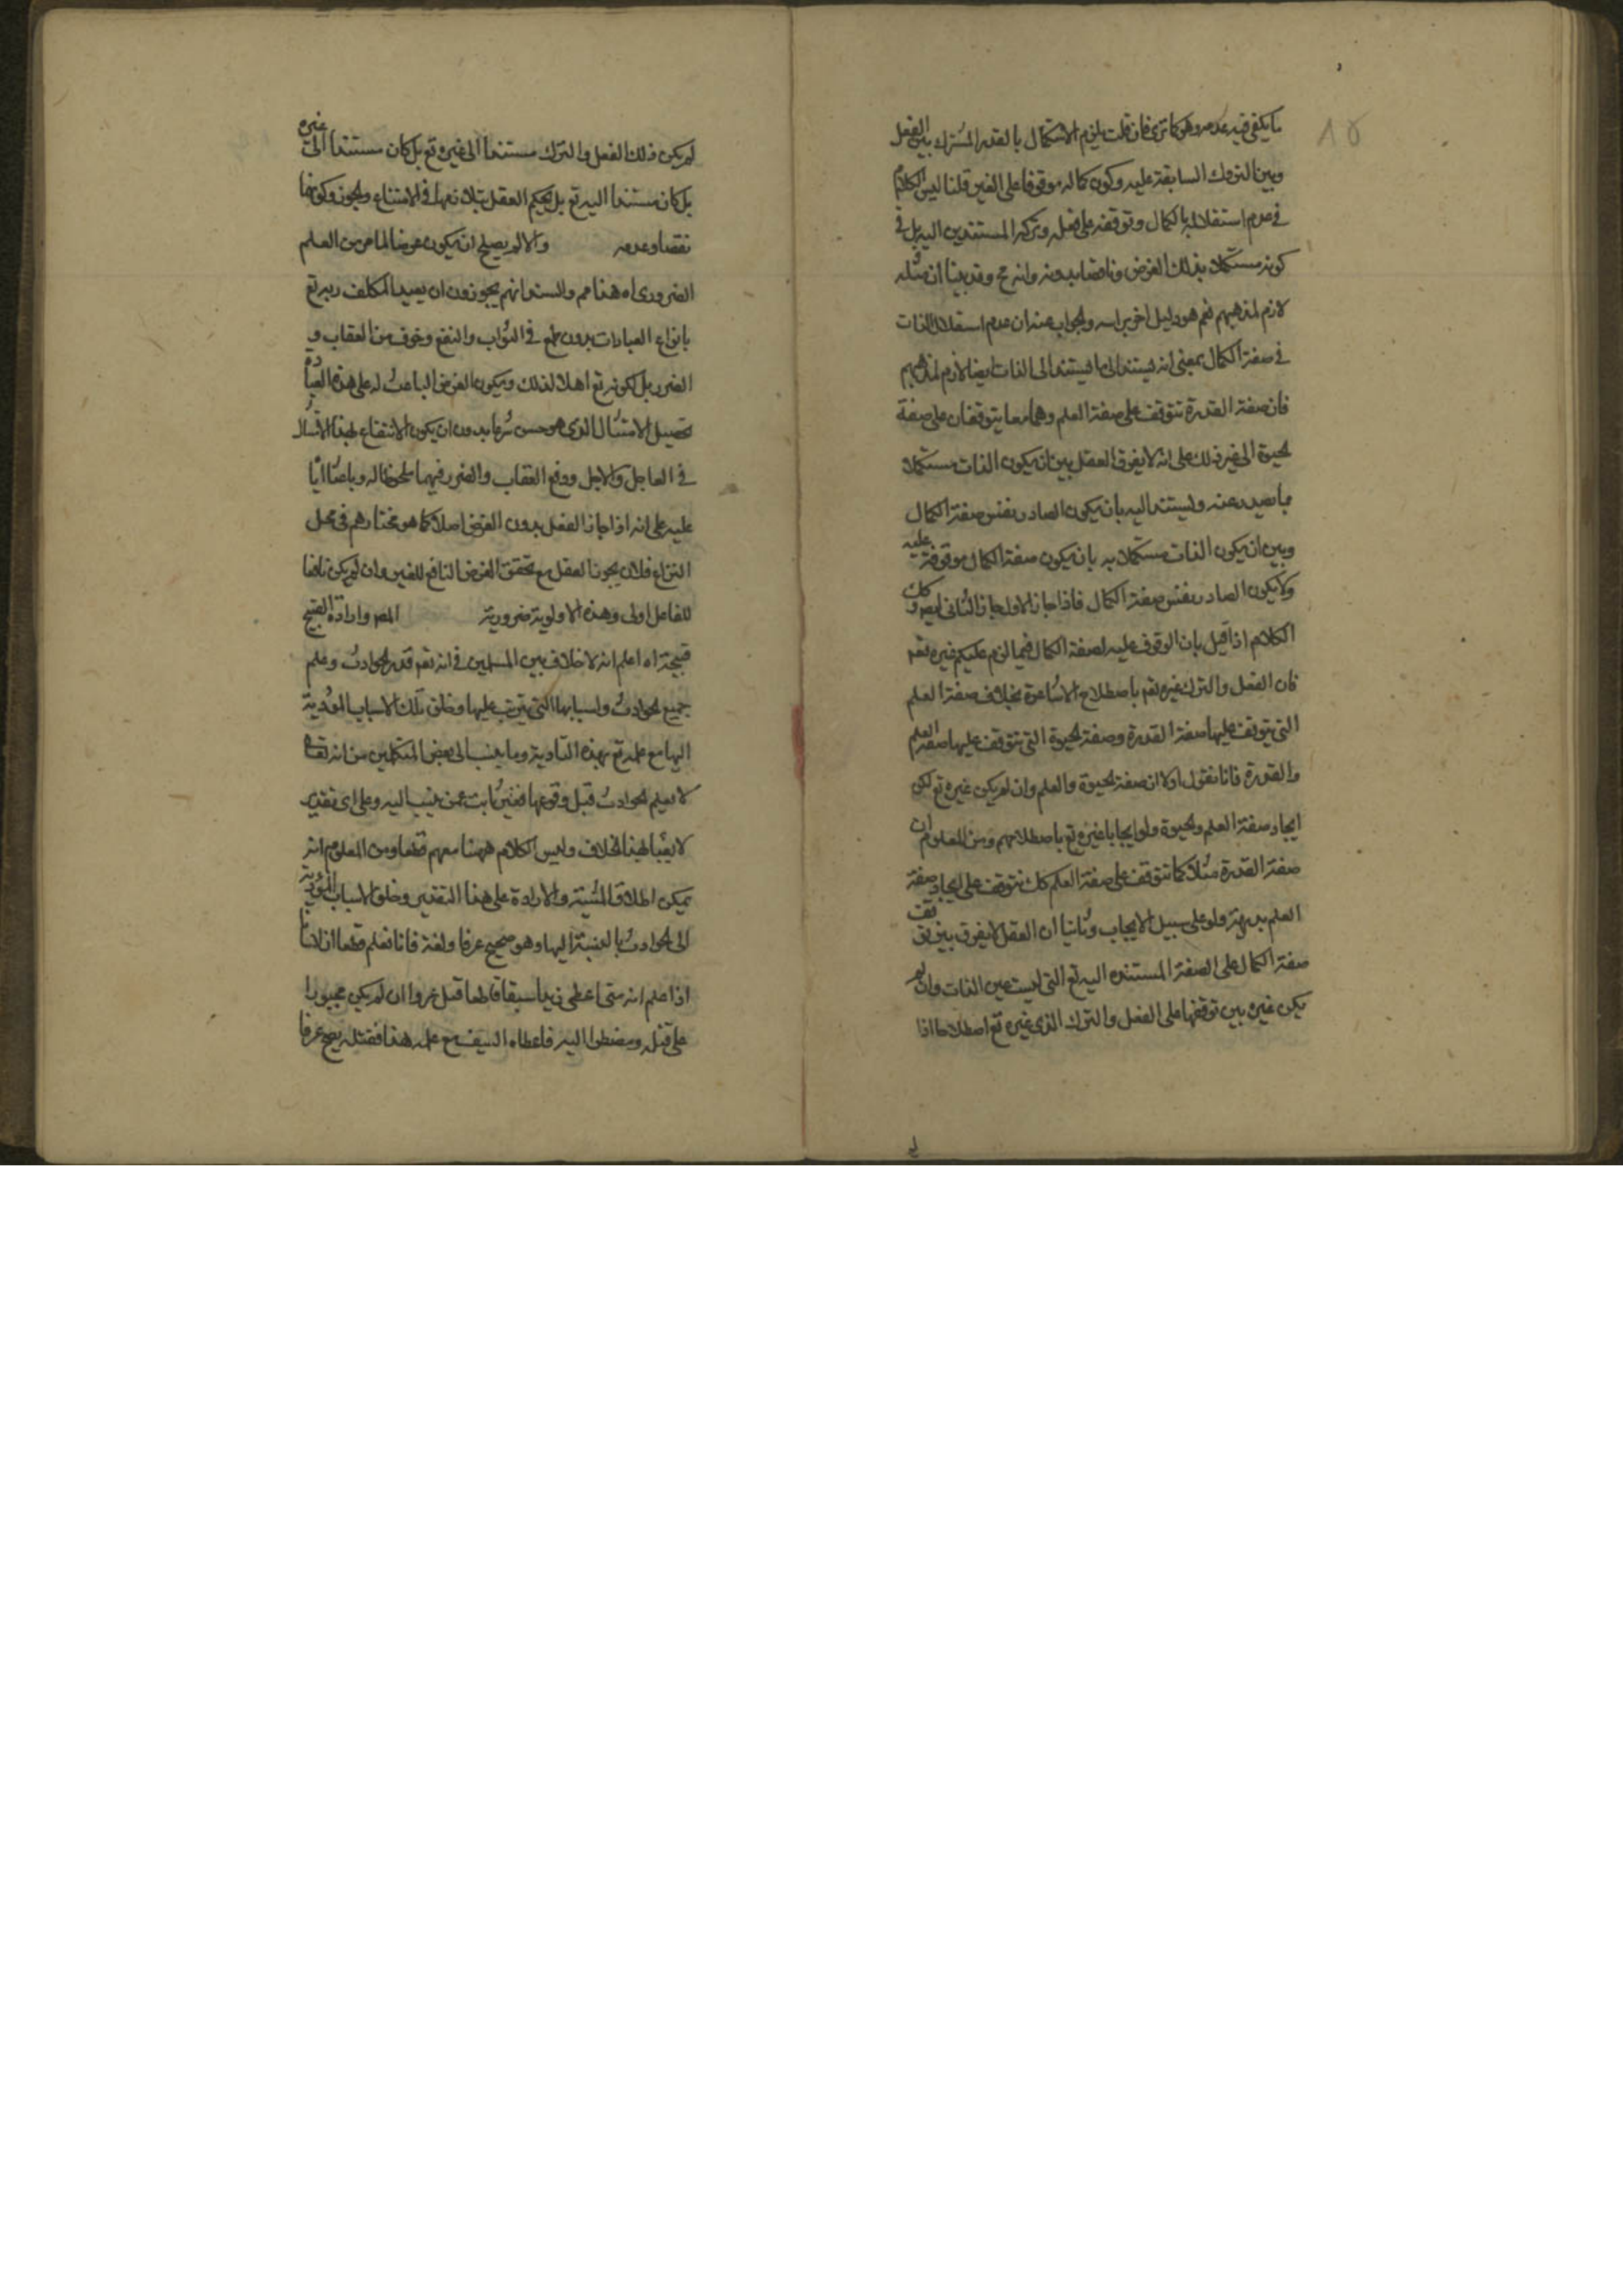 ما يكفى فيه عدمه وهو كما ترى فان قلت يلزم الاستكمال بالقدر المشترك بين الفعل
وبين التروك السابقة عليه وكون كماله موقوفا على الغير قلنا ليس الكلام
في عدم استقلاله بالكمال وتوقفه على فعله وتركه المستندين اليه بل في
كونه مستكملا بذلك الغرض وناقصا بدونه وانه مح وقد بينا ان مثله
لازم لمذهبهم نعم هو دليل اخر براسه والجواب عنه ان عدم استقلال الذات
في صفة الكمال بمعنى انه يستند الى ما يستند الى الذات ايضا لازم لمذهبهم
فان صفة القدرة تتوقف على صفة العلم وهما معا يتوقفان على صفة
الحيوة الى غير ذلك على انه لا يفرق العقل بين ان يكون الذات مستكملا
بما يصدر عنه ويستند اليه بان يكون الصادر نفس صفة الكمال
وبين ان يكون الذات مستكملا به بان يكون صفة الكمال موقوفة عليه
ولا يكون الصادر نفس صفة الكمال فاذا جاز الاول جاز الثانى ايضا وكك
الكلام اذا قيل بان الوقوف عليه لصفة الكمال فيما لزم عليكم غيره تعم
فان الفعل والترك غيره تعم باصطلاح الاشاعرة بخلاف صفة العلم
التى يتوقف عليها صفة القدرة وصفة الحيوة التى تتوقف عليها صفة العلم
والقدرة فانا نقول اولا ان صفة الحيوة والعلم وان لم يكن غيره تع لكن
ايجاد صفة العلم والحيوة ولو ايجابا غيره تع باصطلاحهم ومن المعلوم ان
صفة القدرة مثلا كما تتوقف على صفة العلم كك تتوقف على ايجاد صفة
العلم بديهة ولو على سبيل الايجاب وثانيا ان العقل لا يفرق بين توقف
صفة الكمال على الصفة المستنده اليه تع التى ليست عين الذات وان لم
يكن غيره بين توقفها على الفعل والترك الذى غيره تع اصطلاحا اذا
لم يكن ذلك الفعل والترك مستندا الى غيره تع بل كان مستندا الى غيره
بل كان مستندا اليه تع بل يحكم العقل بتلازمهما في الامتناع والجوز وكونها
نقصا وعدمه والا لم يصلح ان يكون غرضا لما مر من العلم
الضرورى اه هذا مم والسند انهم يجوزون ان يعبد المكلف ربه تع
بانواع العبادات بدون طمع في الثواب والنفع وخوف من العقاب و
الضرر بل لكونه تع اهلا لذلك ويكون الغرض الباعث له على هذه العبادة
تحصيل الامتثال الذى هو حسن شرعا بدون ان يكون الانتفاع لهذا الامتثال
في العاجل والاجل ودفع العقاب والضرر فيهما ملحوظا له وباعثا اياه
عليه على انه اذا جاز الفعل بدون الغرض اصلا كما هو مختارهم في محل
النزاع فلان يجوز العقل مع تحقق الغرض النافع للغير وان لم يكن نافعا
للفاعل اولى وهذه الاولوية ضرورية المص وارادة القبيح
قبيحة اه اعلم انه لا خلاف بين المسلمين في انه تعم قدر الحوادث وعلم
جميع الحوادث واسبابها التى يترتب عليها وخلق تلك الاسباب المؤدية
اليها مع علمه تع بهذه التأدية وما ينسب الى بعض المتكلمين من انه تعالى
لا يعلم الحوادث قبل وقوعها فغير ثابت عمن ينسب اليه وعلى اى تقدير
لا يعبأ بهذا الخلاف وليس الكلام ههنا معهم قطعا ومن المعلوم انه
يمكن اطلاق المشية والارادة على هذا التقدير وخلق الاسباب المؤدية
الى الحوادث بالنسبة اليها وهو صحيح عرفا ولغة فانا نعلم قطعا ان فلانا
اذا علم انه متى اعطى زيدا سيفا قاطعا قتل عمروا ان لم يكن مجبورا
على قتله ومضطرا اليه فاعطاه السيف مع علمه هذا فقتله يصح عرفا